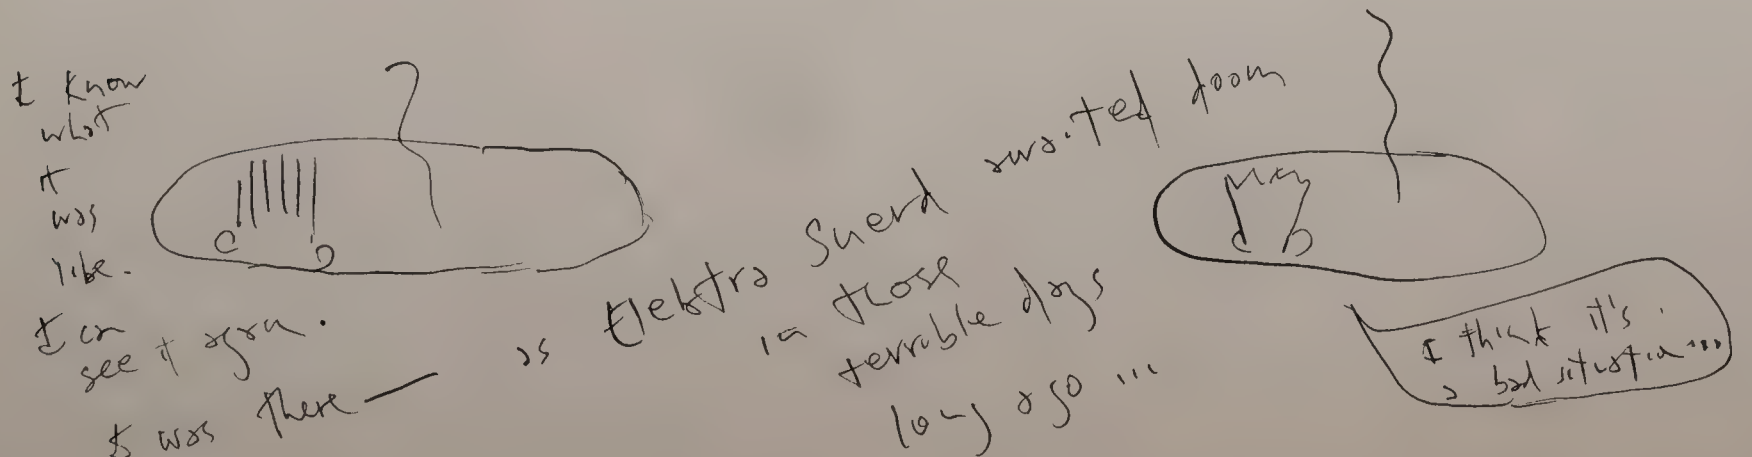 I know
what
it
was
like.
I can
see it again.
I was there —
as Elektra Suerd awaited doom
in those
terrible days
long ago ...
C D
C D
I think it's
a bad situation ...